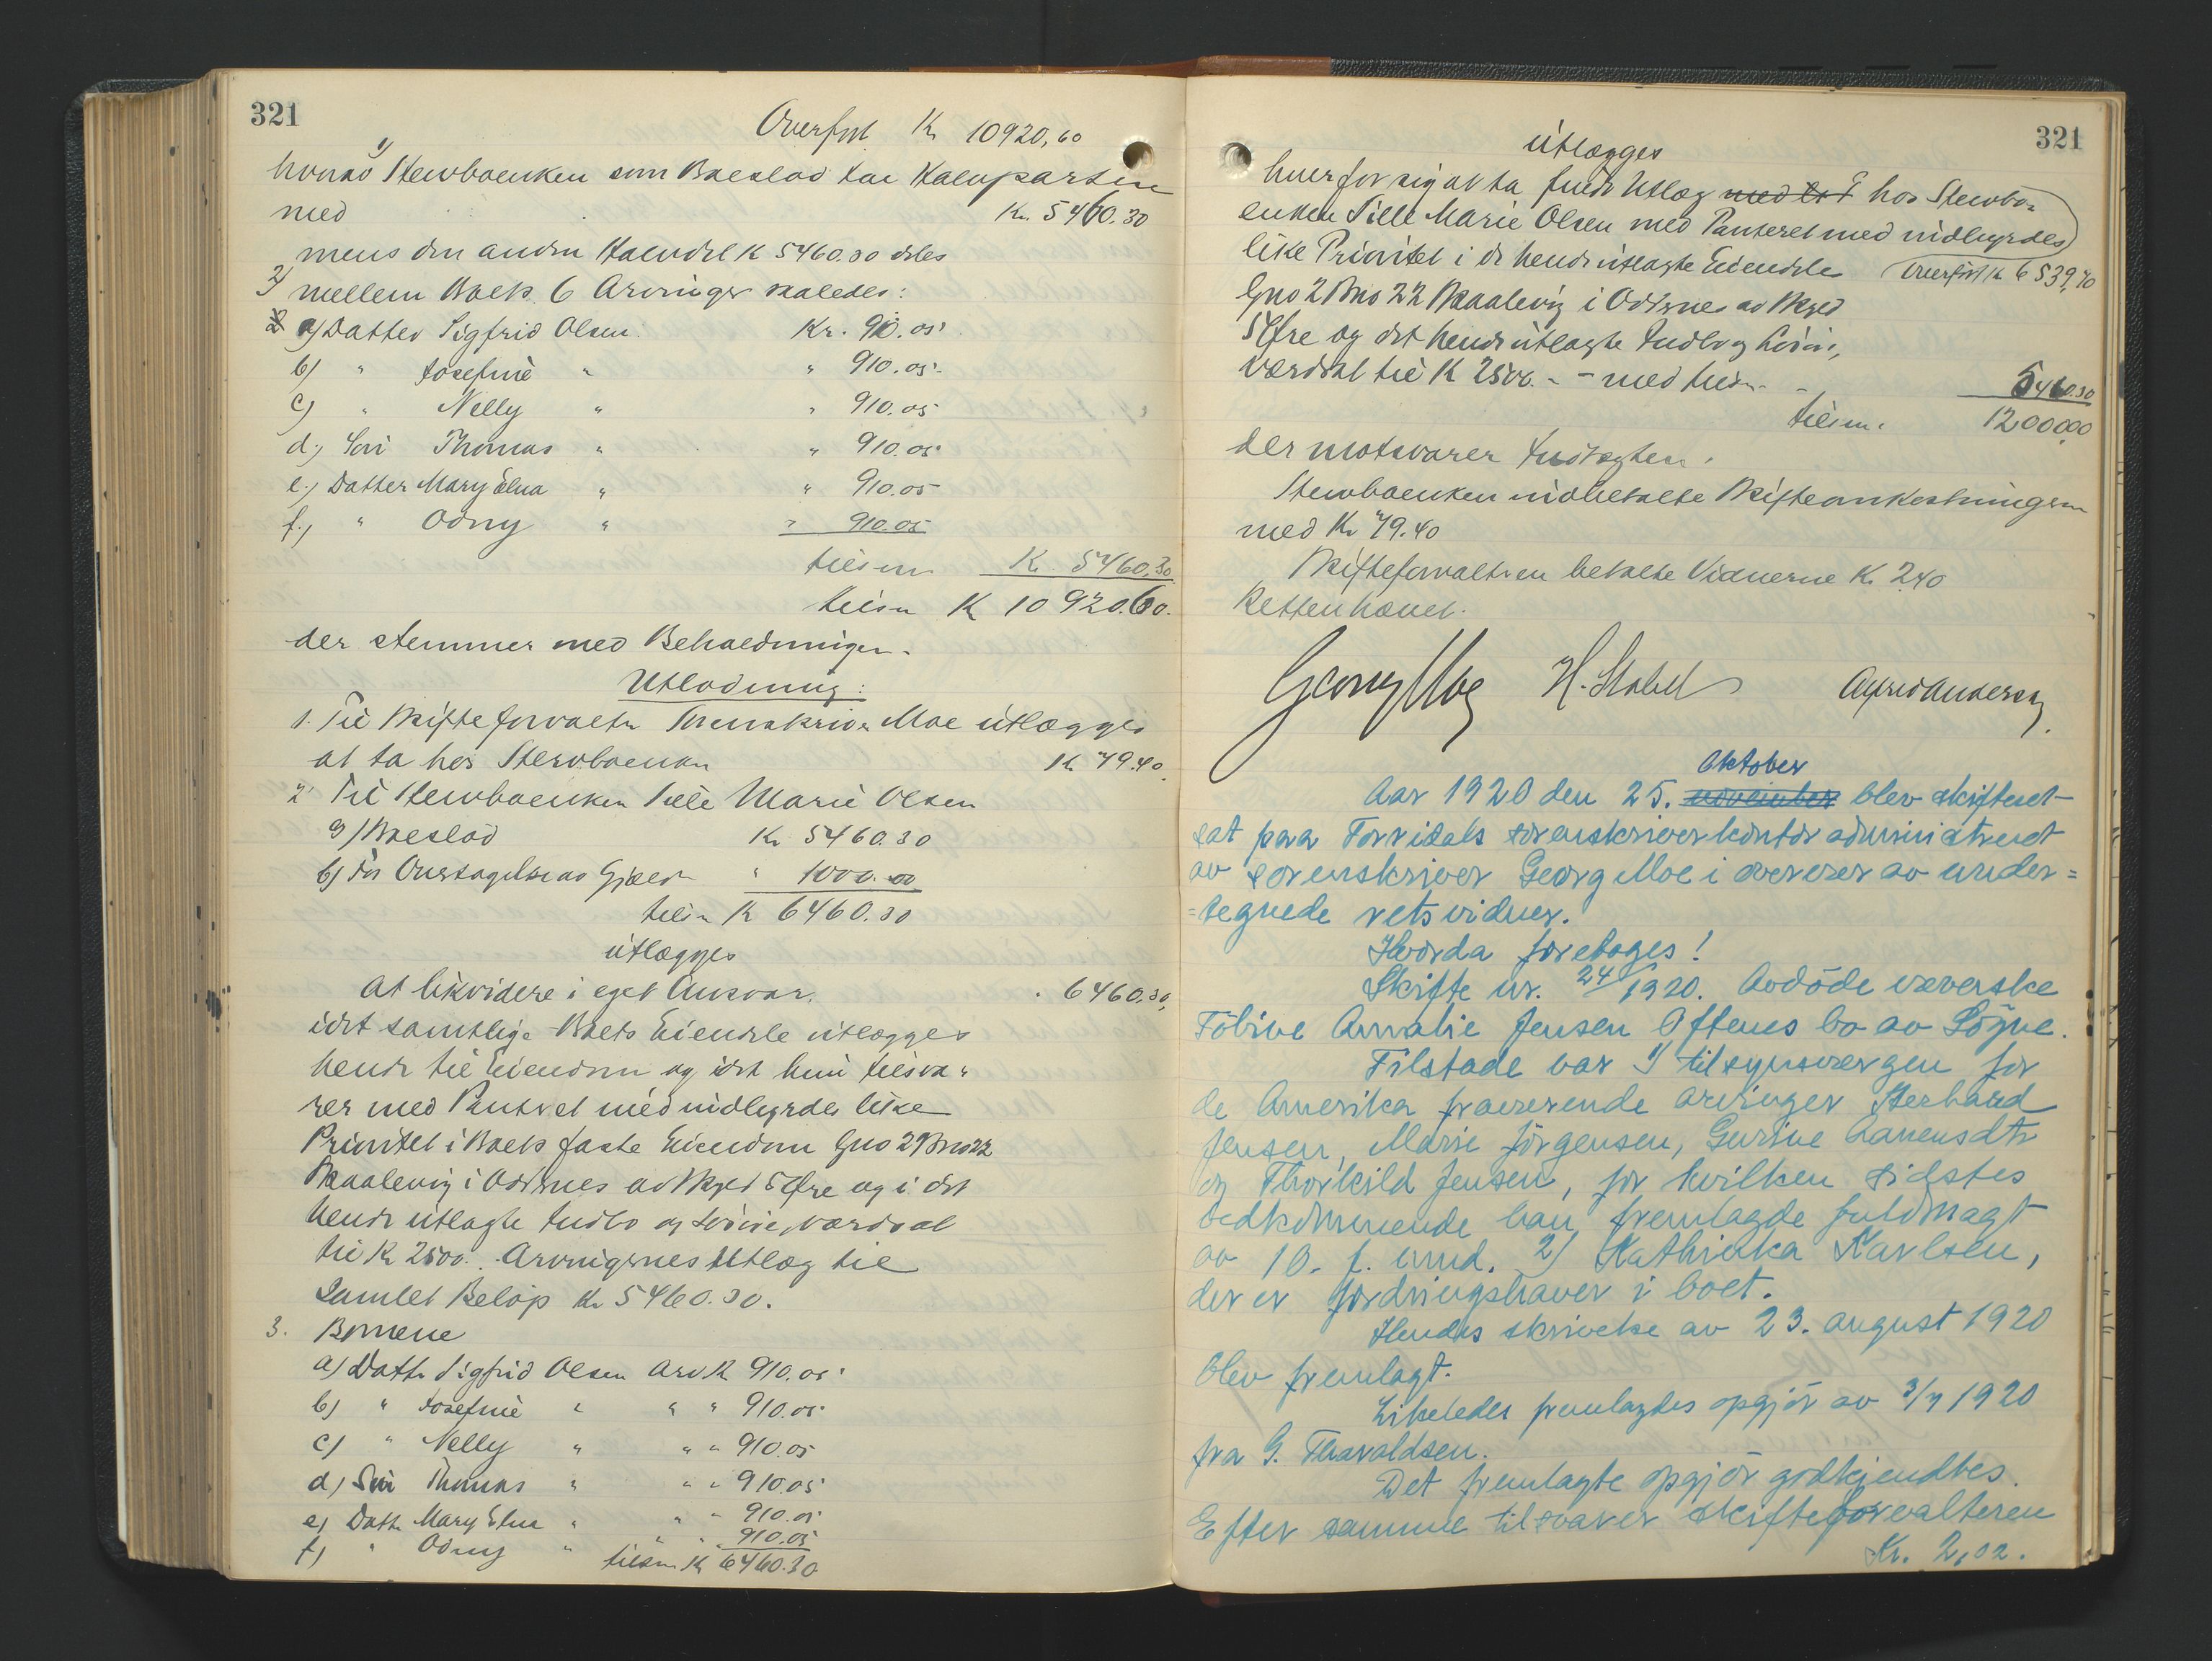 321
Overført Kr 10920,60
hvorav 1) Stervboenken som Boeslod tar Halvparten
med Kr. 5460.30
mens den anden Halvdel K 5460.30 deles
2) mellem Boets 6 Arvinger saaledes:
a) Datter Sigfrid Olsen. Kr. 910.05
b) " Josefine " " 910.05
c) " Nelly " " 910.05
d) Søn Thomas " " 910.05
e) Datter Mary Elna " " 910.05
f.) " Odny " " 910.05
tilsm K. 5460,30
tilsm K 10920.60.
der stemmer med Beholdningen.
Utlodning:
1. Til Skifteforvalter Sorenskriver Moe utlægges
at ta hos Stervboenken K 79.40
2. Til Stervboenken Tille Marie Olsen
a) Boeslod Kr 5460.30
b) For Overtagelse av Gjæld " 1000.00
tilsm K 6460.30
utlægges
at likvidere i eget Ansvar. " 6460.30,
idet samtlige Boets Eiendele utlægges
hende til Eiendom og idet hun tilsva-
rer med Panteret med indbyrdes like
Prioritet i Boets faste Eiendom Gno 2 Bno 22
Skaalevig i Oddernes av Skyld 5 Øre og i det
hende utlagte Indbo og Løsøre, værdsat
til Kr 2500.- Arvingernes Utlæg til
Samlet Beløp Kr 5460.30.
3. Børnene
a) Datter Sigfrid Olsen Arv K 910.05
b) " Josefine " " " 910.05
c) " Nelly " " " 910.05
d) Søn Thomas " " " 910.05
e) Datter Mary Elna " " " 910.05
f) " Odny " " " 910.05
tilsm K 5460.30
321
utlægges
hver for sig at ta sit Utlæg hos Stervbo-
enken Tille Marie Olsen med Panteret med indbyrdes
like Prioritet i de hende utlagte Eiendele Overført Kr 6539,70
Gno 2 Bno 22 Skaalevig i Oddernes av Skyld
5 Øre og det hende utlagte Indbo og Løsøre,
værdsat til K 2500.- - med tilsm - 5460.30
tilsm. 12000,00
der motsvarer Indtægten.
Stervboenken indbetalte Skifteomkostningerne
med Kr 79.40
Skifteforvalteren betalte Vidnerne K. 2.40
Retten hævet.
Georg Moe H. Stabell Alfred Andersen
Oktober
Aar 1920 den 25. november blev skifteret
sat paa Torridals sorenskriverkontor administreret
av sorenskriver Georg Moe i overvær av under=
=tegnede retsvidner.
Hvorda foretages!
Skifte nr. 24/1920. Avdöde væverske
Tobine Amalie Jensen Oftenes bo av Sögne.
Tilstede var 1) tilsynsvergen for
de Amerika fraværende arvinger Gerhard
Jensen, Marie Jörgensen, Gurine Aanensdtr
og Thorkild Jensen, for hvilken sidstes
vedkommende han fremlagde fuldmagt
av 10. f. mnd. 2) Kathinka Karlsen,
der er fordringshaver i boet.
Hendes skrivelse av 23. august 1920
blev fremlagt.
Likeledes fremlagdes opgjör av 3/7 1920
fra G. Tharaldsen.
Det fremlagte opgjör godkjendtes.
Efter samme tilsvarer skifteforvalteren
Kr. 2,02.